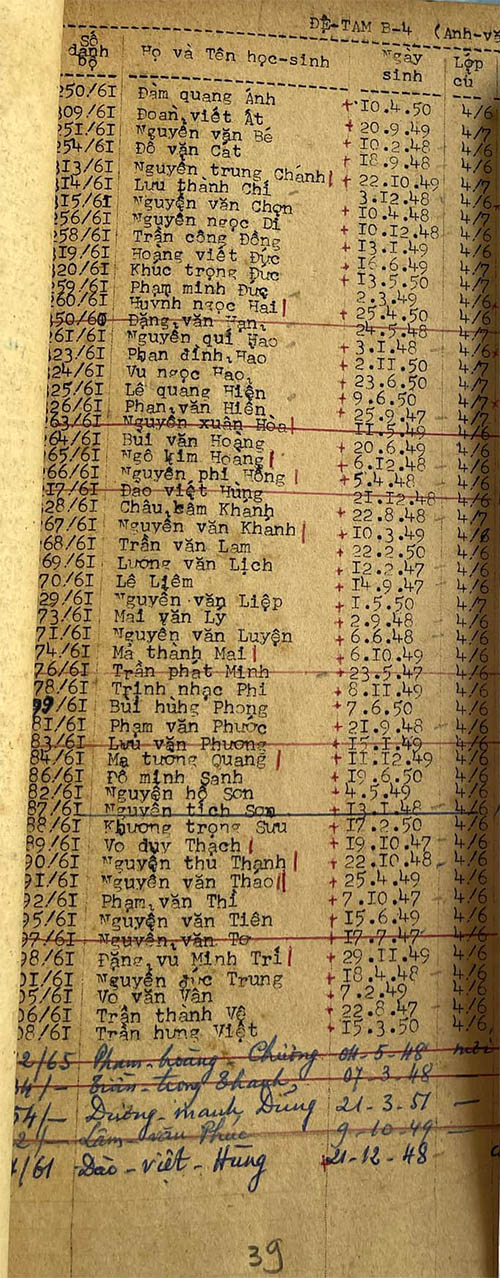 ĐỆ-TAM B-4 (Anh-vă
Số danh bộ Họ và Tên học-sinh Ngày sinh Lớp cũ
250/6I Đàm quang Ánh +10.4.50 4/6
309/6I Đoàn viết Ất +20.9.49 4/7
25I/6I Nguyễn văn Bé +I0.2.48 4/6
254/6I Đỗ văn Cát +I8.9.48 4/6
3I3/6I Nguyễn trung Chánh +22.I0.49 4/7
3I4/6I Lưu thành Chí 3.I2.48 4/7
3I5/6I Nguyễn văn Chọn +I0.4.48 4/7
256/6I Nguyễn ngọc Di +I0.I2.48 4/6
258/6I Trần công Đồng +I3.I.49 4/6
3I9/6I Hoàng viết Đức +I6.6.49 4/7
320/6I Khúc trọng Đức +I3.5.50 4/7
259/6I Phạm minh Đức 2.3.49 4/6
260/6I Huỳnh ngọc Hai +25.4.50 4/6
350/60 Đặng văn Hạn 24.5.48 4/7
26I/6I Nguyễn quí Hao +3.I.48 4/6
323/6I Phan đình Hao +2.II.50 4/7
24/6I Vu ngọc Hao +23.6.50 4/7
25/6I Lê quang Hiện +9.6.50 4/7
26/6I Phan văn Hiền +25.9.47 4/7
63/6I Nguyễn xuân Hòa II.5.49 4/6
64/6I Bùi văn Hoàng +20.6.49 4/6
65/6I Ngô kim Hoàng +6.I2.48 4/6
66/6I Nguyễn phi Hồng +5.4.48 4/6
I7/6I Đào viết Hùng 2I.I2.48 4/6
28/6I Châu Khanh +22.8.48 4/7
67/6I Nguyễn văn Khánh +I0.3.49 4/6
68/6I Trần văn Lam +22.2.50 4/6
69/6I Lương văn Lịch +I2.2.47 4/6
70/6I Lê Liêm +I4.9.47 4/6
29/6I Nguyễn văn Liệp +I.5.50 4/7
73/6I Mai văn Lý +2.9.48 4/6
7I/6I Nguyễn văn Luyện +6.6.48 4/6
74/6I Mả thành Mai +6.I0.49 4/6
76/6I Trần phát Minh +23.5.47 4/6
78/6I Trịnh nhạc Phi +8.II.49 4/6
99/6I Bùi hùng Phong +7.6.50 4/6
8I/6I Phạm văn Phước +2I.9.48 4/6
83/6I Lưu văn Phương +I2.I.49 4/6
84/6I Mạ tường Quang +II.I2.49 4/6
86/6I Đỗ minh Sanh +I9.6.50 4/6
82/6I Nguyện hồ Sơn +4.5.49 4/6
87/6I Nguyễn tích Sơn +I3.I.48 4/6
88/6I Khương trọng Sưu +I7.2.50 4/6
89/6I Vo duy Thạch +I9.I0.47 4/6
90/6I Nguyễn thu Thanh +22.I0.48 4/6
9I/6I Nguyễn văn Thảo +25.4.49 4/6
92/6I Phạm văn Thi +7.I0.47 4/6
95/6I Nguyễn văn Tiên +I5.6.49 4/6
97/6I Nguyễn văn Tơ +I7.7.47 4/6
98/6I Đặng vủ Minh Trí +29.II.49 4/6
0I/6I Nguyễn đức Trung +I8.4.48 4/6
05/6I Vo văn Vân +7.2.49 4/6
06/6I Trần thành Vệ +22.8.47 4/6
08/6I Trần hưng Việt +I5.3.50 4/6
2/65 Phạm-hoàng-Chương 04-5-48 mới
34/- Trần-trong-Khanh 07-3-48 -
54/- Dương-mạnh Dũng 21-3-51 -
2/- Lâm văn Phúc 9-10-49 -
/61 Đào-việt-Hùng +21-12-48
39